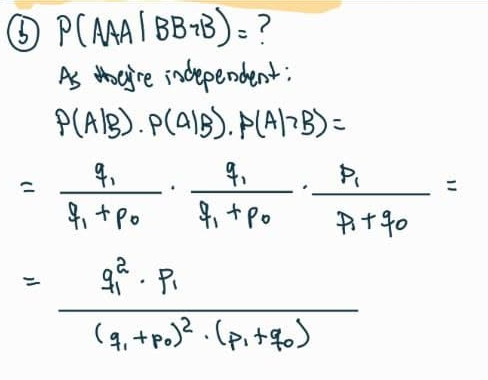 ⑤ P(AAA|BB¬B)=?
As they're independent:
P(A|B).P(A|B).P(A|¬B)=
= q₁/(q₁+p₀) · q₁/(q₁+p₀) · p₁/(p₁+q₀) =
= q₁²·p₁/((q₁+p₀)²·(p₁+q₀))